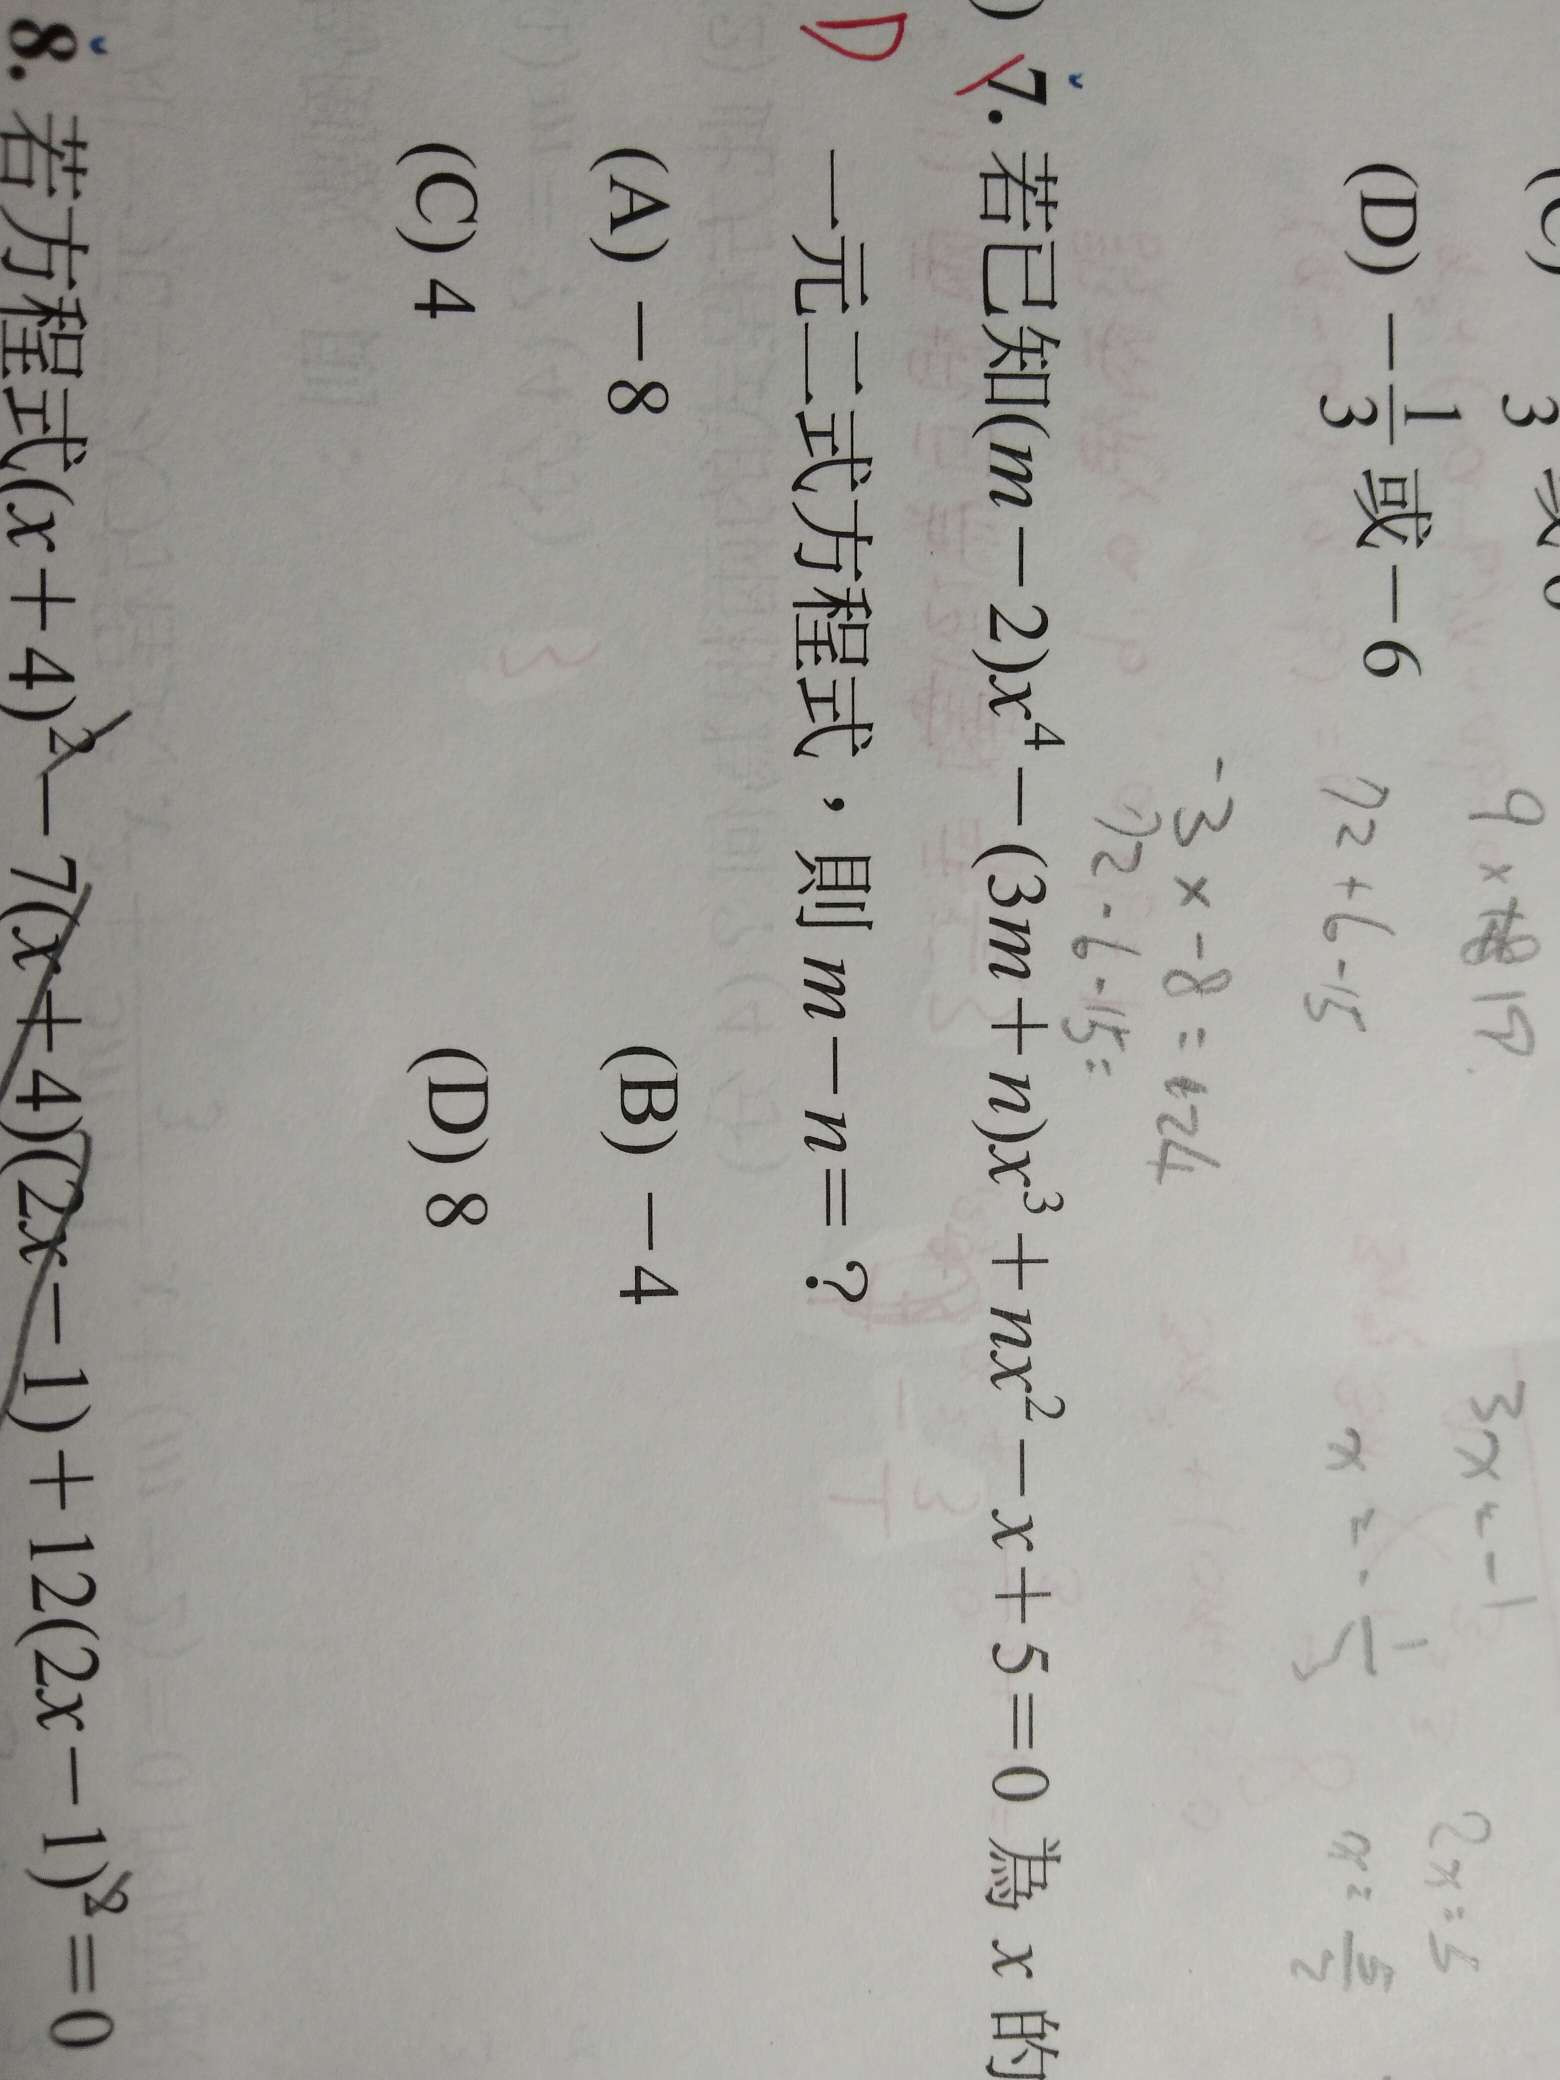 (D) －1/3 或－6
9 × 19
72 + 6 - 15
3x = -1
x = -1/3
2x = 5
x = 5/2
-3 × -8 = +24
72 - 6 - 15 =
7. 若已知(m－2)x⁴－(3m＋n)x³＋nx²－x＋5＝0 為 x 的
D
一元二式方程式，則 m－n＝？
(A)－8 (B)－4
(C) 4 (D) 8
8. 若方程式(x＋4)²－7(x＋4)(2x－1)＋12(2x－1)²＝0